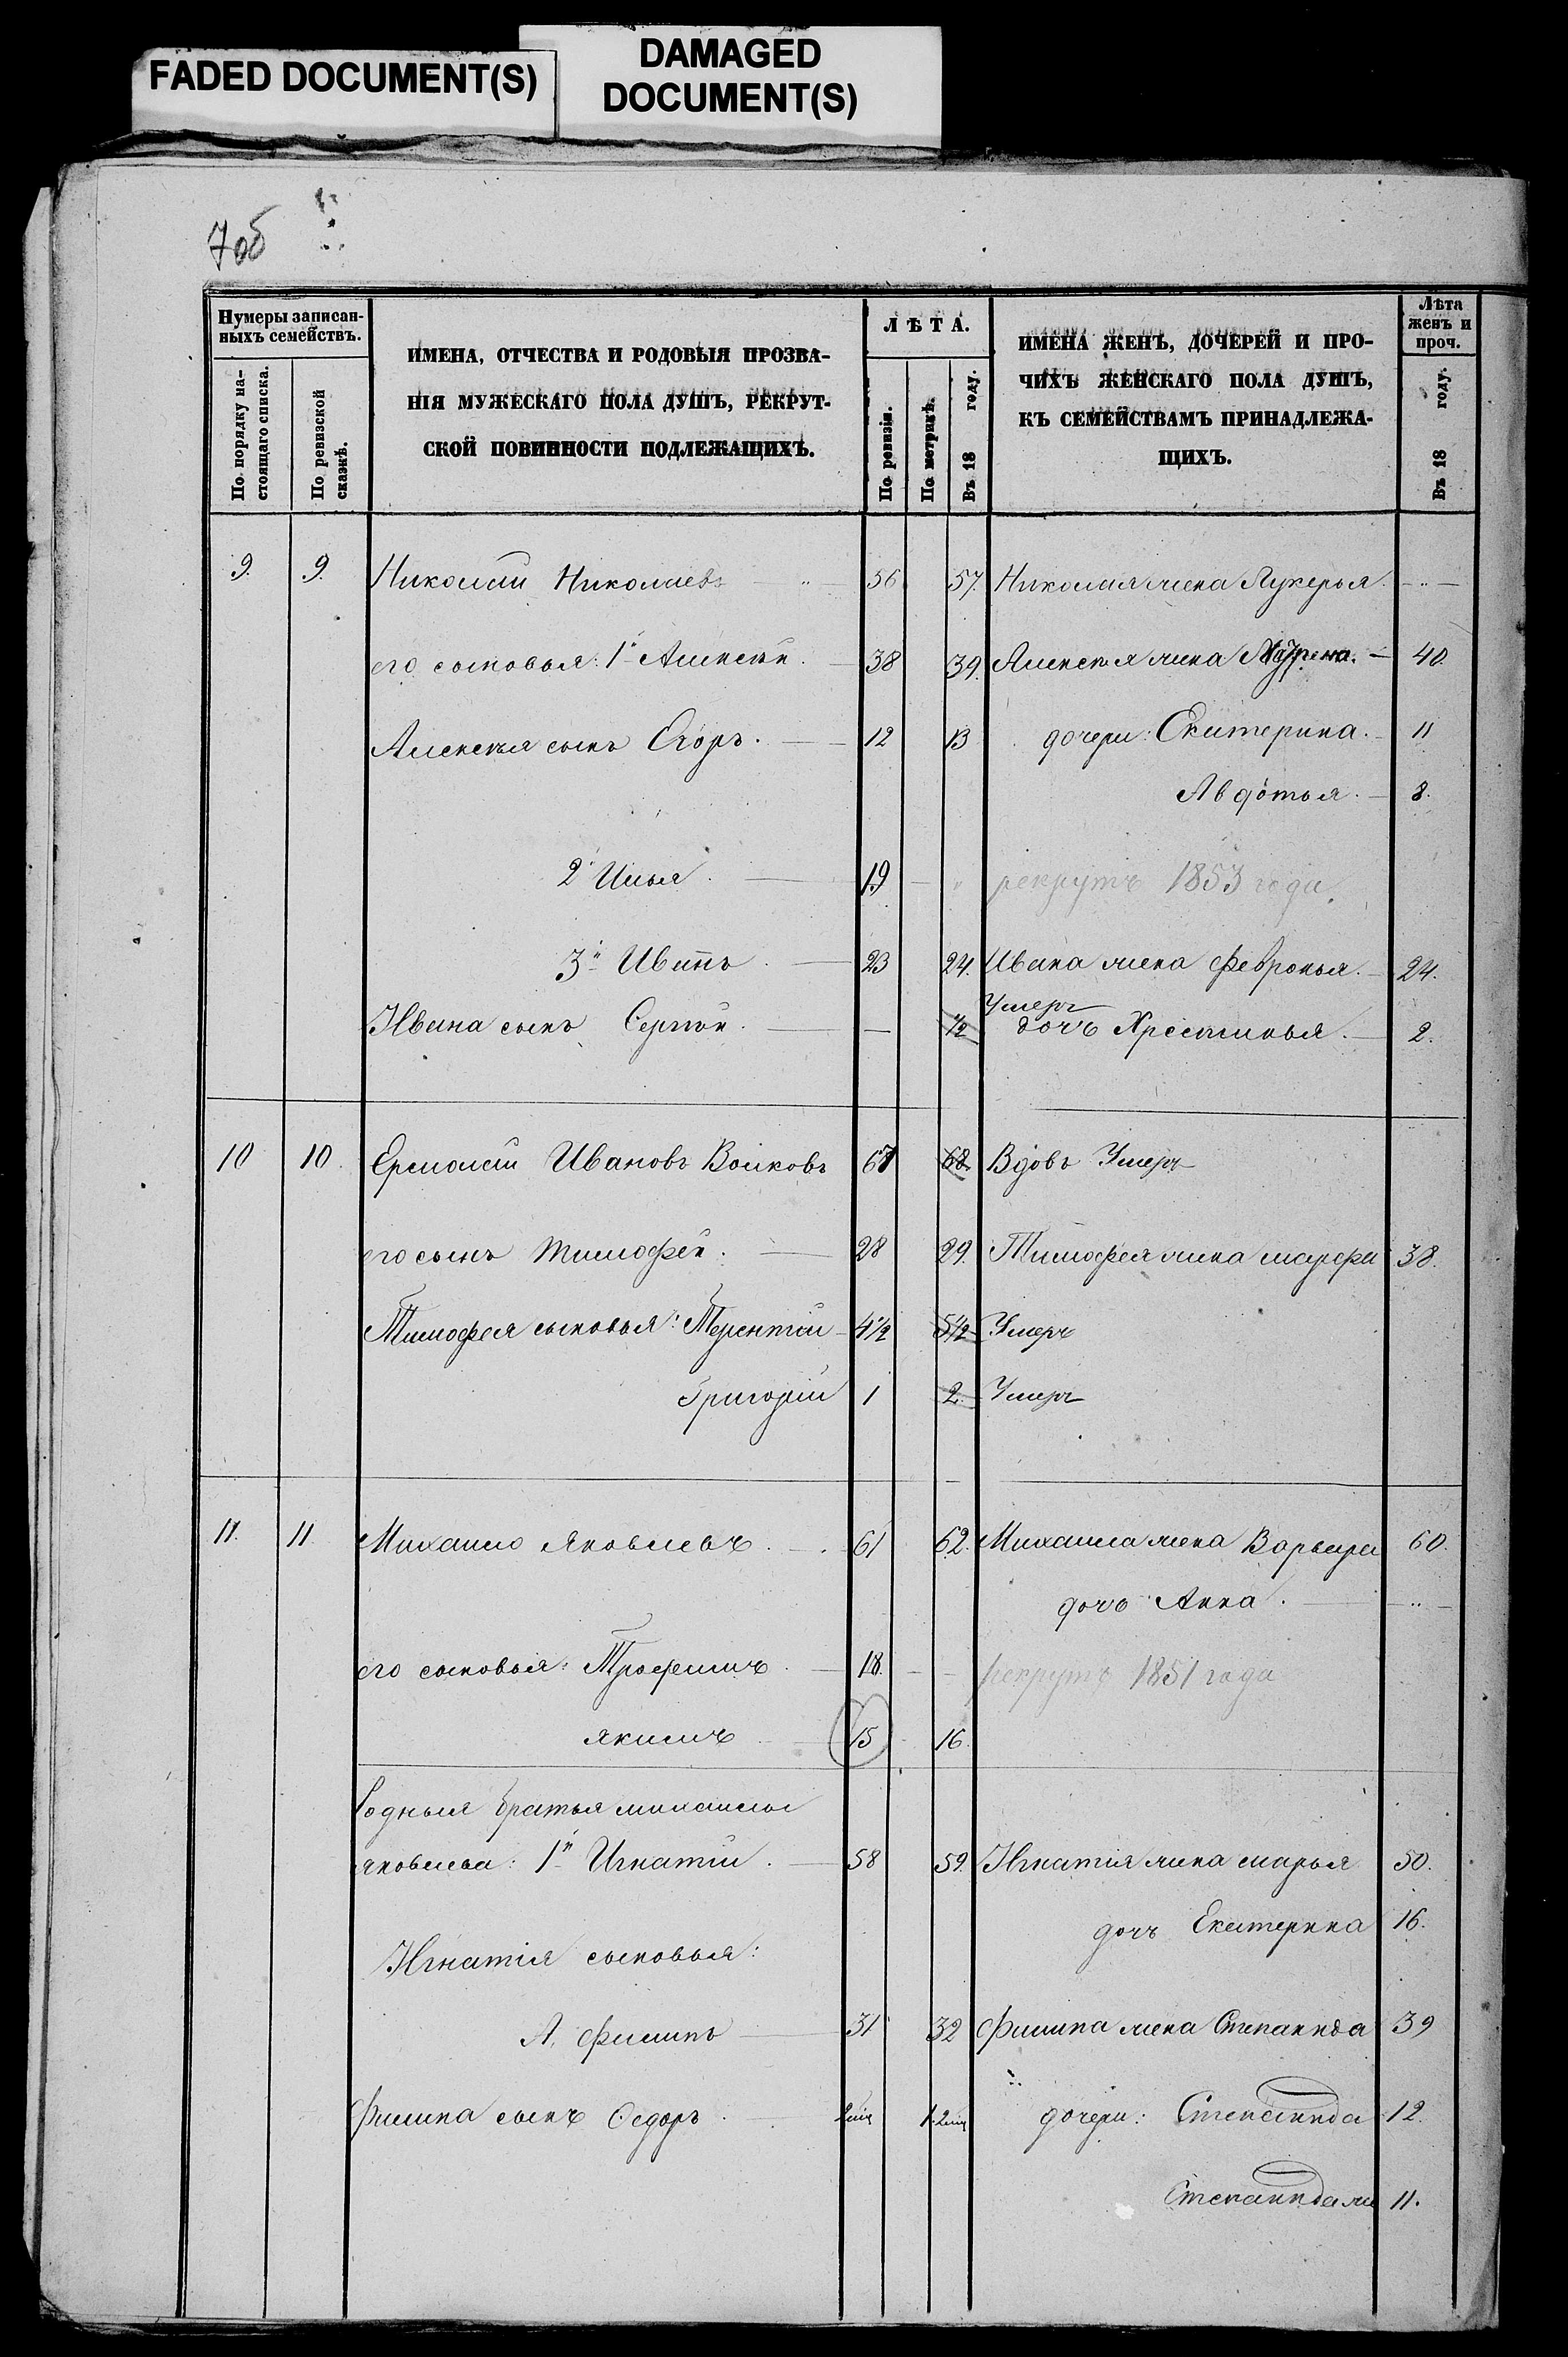 FADED DOCUMENT(S)
DAMAGED
DOCUMENT(S)
7об
Нумеры записан-
ныхъ семействъ.
По порядку на-
стоящаго списка.
По ревизской
сказкѣ.
ИМЕНА, ОТЧЕСТВА И РОДОВЫЯ ПРОЗВА-
НІЯ МУЖЕСКАГО ПОЛА ДУШЪ, РЕКРУТ-
СКОЙ ПОВИННОСТИ ПОДЛЕЖАЩИХЪ.
ЛѢТА.
По ревизіи.
По метрикѣ.
Въ 18 году.
ИМЕНА ЖЕНЪ, ДОЧЕРЕЙ И ПРО-
ЧИХЪ ЖЕНСКАГО ПОЛА ДУШЪ,
КЪ СЕМЕЙСТВАМЪ ПРИНАДЛЕЖА-
ЩИХЪ.
Лѣта
женъ и
проч.
Въ 18 году.
9. 9. Николай Николаевъ 56 57. Николая жена Лукерья - „ -
его сыновья: 1й Алексѣй. 38 39. Алексѣя жена 40.
Алексѣя сынъ Егоръ. 12 13 дочери: Екатерина. 11
Авдотья. 8.
2й Илья. 19 „ рекрутъ 1853 года.
3й Иванъ 23 24. Ивана жена Февронья. 24.
Умеръ
Ивана сынъ Сергѣй. — 1/2 дочь Хрестинья. 2.
10 10. Ермолай Ивановъ Волковъ 67 68. Вдовъ Умеръ
его сынъ Тимофей. 28 29. Тимофея жена марфа 38.
Тимофея сыновья: Терентій 4 1/2 5 1/2 Умеръ
Григорій 1 2. Умеръ
11. 11. Михайло Яковлевъ. 61 62. Михайла жена Варвара 60.
дочь Анна. - „ -
его сыновья: Трофимъ 18. рекрутъ 1851 года
якимъ 15 16.
Родныя братья михайлы
яковлева: 1й Игнатій. 58 59. Игнатія жена марья 50.
дочь Екатерина 16.
Игнатія сыновья:
А, филипъ 31 32 филипа жена Степанида 39
филипа сынъ Ѳедоръ 2мц 1.2мц дочери: Степанида 12.
Степанида же 11.